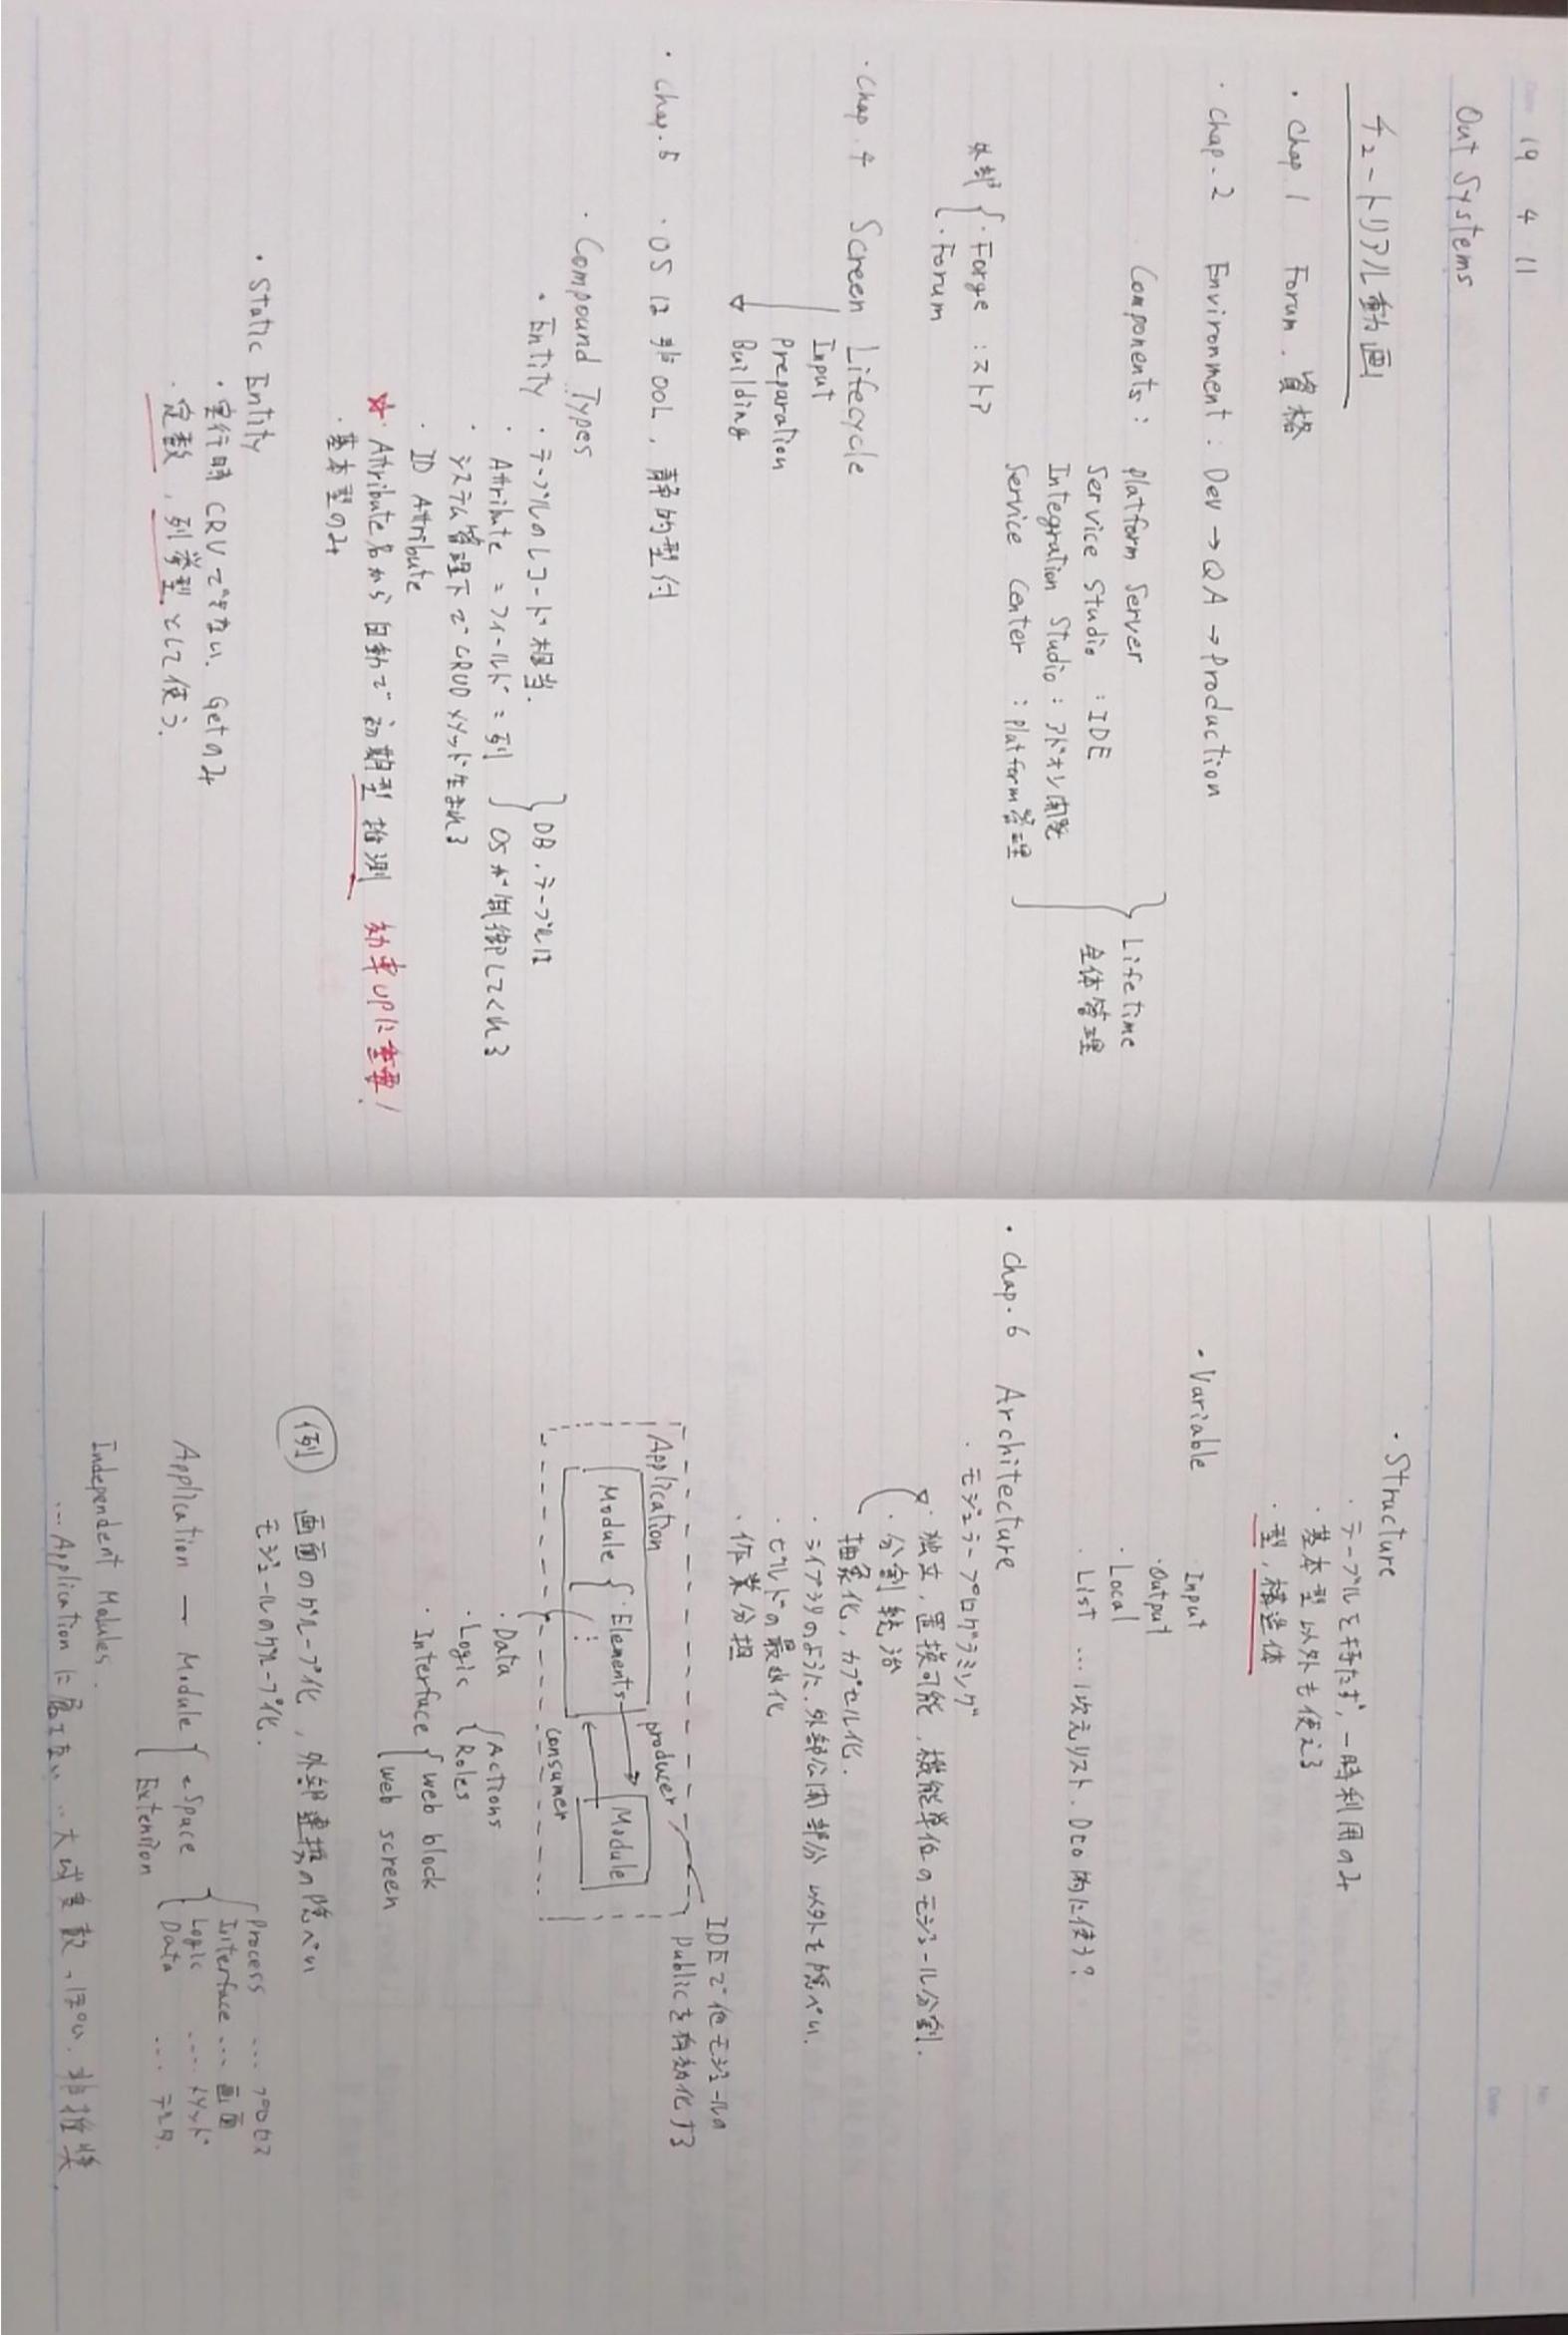 Date 19 4 11
Out Systems
チュートリアル動画
・Chap 1 Forum. 資格
・Chap. 2 Environment : Dev → QA → Production
Components : Platform Server
Service Studio : IDE
Integration Studio : アドオン開発
Service Center : Platform管理
} Lifetime
全体管理
外部 { ・Forge : ストア
・Forum
・Chap. 4 Screen Lifecycle
Input
Preparation
Building
・Chap. 5 ・OS は 非OOL, 静的型付
・Compound Types
・Entity ・テーブルのレコード相当.
・Attribute = フィールド = 列
} DB. テーブルは
OSが制御してくれる
・システム管理下で CRUDメソッド生まれる
・ID Attribute
☆・Attribute名から自動で初期型推測 効率UPに重要!
・基本型のみ
・Static Entity
・実行時 CRUできない. Getのみ
・定数, 列挙型として使う.
・Structure
・テーブルを持たず, 一時利用のみ
・基本型以外も使える
・型, 構造体
・Variable Input
・Output
・Local
・List … 1次元リスト. DCO的に使う?
・Chap. 6 Architecture
・モジュラープログラミング
・独立, 置換可能, 機能単位のモジュール分割.
・分割統治
抽象化, カプセル化.
・ライブラリのように, 外部公開部分以外を隠ぺい.
・ビルドの最適化
・作業分担
IDEで他モジュールの
Publicを有効化する
Application
Module { ・Elements
⋮
producer
Module
consumer
・Data
・Logic { Actions
Roles
・Interface { web block
web screen
例 画面のグループ化, 外部連携の隠ぺい
モジュールのグループ化.
Application — Module { eSpace
Extension
{ Process … プロセス
Interface … 画面
Logic … メソッド
Data … データ.
Independent Modules.
… Applicationに属さない
非推奨.